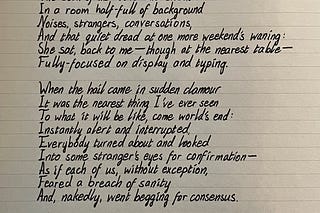 In a room half-full of background
Noises, strangers, conversations,
And that quiet dread at one more weekend's waning:
She sat, back to me—though at the nearest table—
Fully-focused on display and typing.
When the hail came in sudden clamour
It was the nearest thing I've ever seen
To what it will be like, come world's end:
Instantly alert and interrupted,
Everybody turned about and looked
Into some stranger's eyes for confirmation—
As if each of us, without exception,
Feared a breach of sanity
And, nakedly, went begging for consensus.